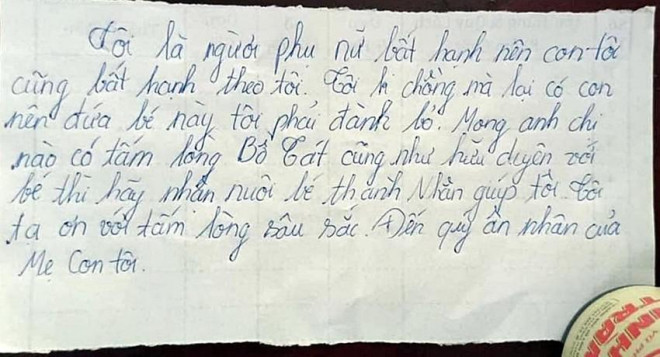 Tôi là người phụ nữ bất hạnh nên con tôi
cũng bất hạnh theo tôi. Tôi k chồng mà lại có con
nên đứa bé này tôi phải đành bỏ. Mong anh chị
nào có tấm lòng Bồ Tát cũng như hữu duyên với
bé thì hãy nhận nuôi bé thành Nhân giúp tôi. Tôi
tạ ơn với tấm lòng sâu sắc. Đến quý ân nhân của
Mẹ Con tôi.